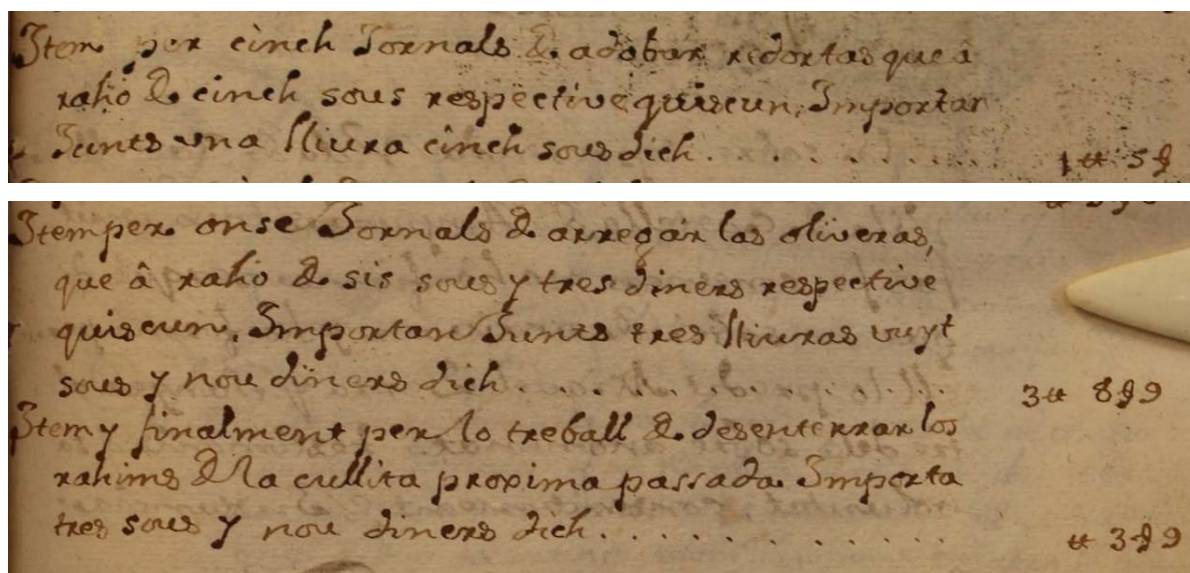 Item per cinch Jornals de adobar redortas que á
raho de cinch sous respective quiscun, Importan
Junts una lliura cinch sous dich . . . . . . . . 1 ₶ 5 ß
Item per onse Jornals de arregar las oliveras,
que â raho de sis sous y tres diners respective
quiscun, Importan Junts tres lliuras vuyt
sous y nou diners dich . . . . . . . . 3 ₶ 8 ß 9
Item y finalment per lo treball de desenterrar los
rahims de la cullita proxima passada Importa
tres sous y nou diners dich . . . . . . . . . . . ₶ 3 ß 9